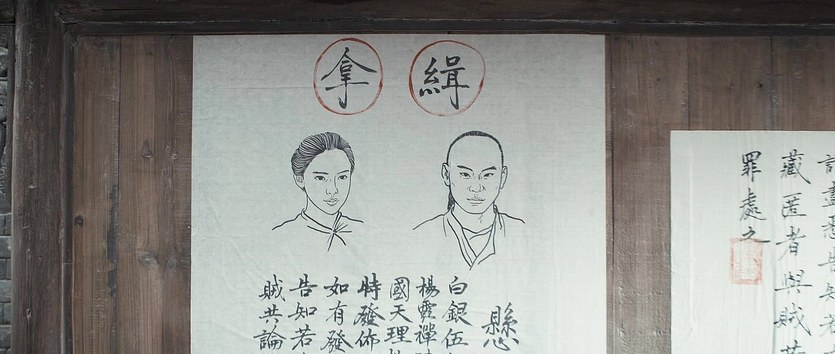 緝拿
懸
白銀伍
楊露禪
國天理
特發佈
如有發
告知若
賊共論
藏匿者與賊
罪處之